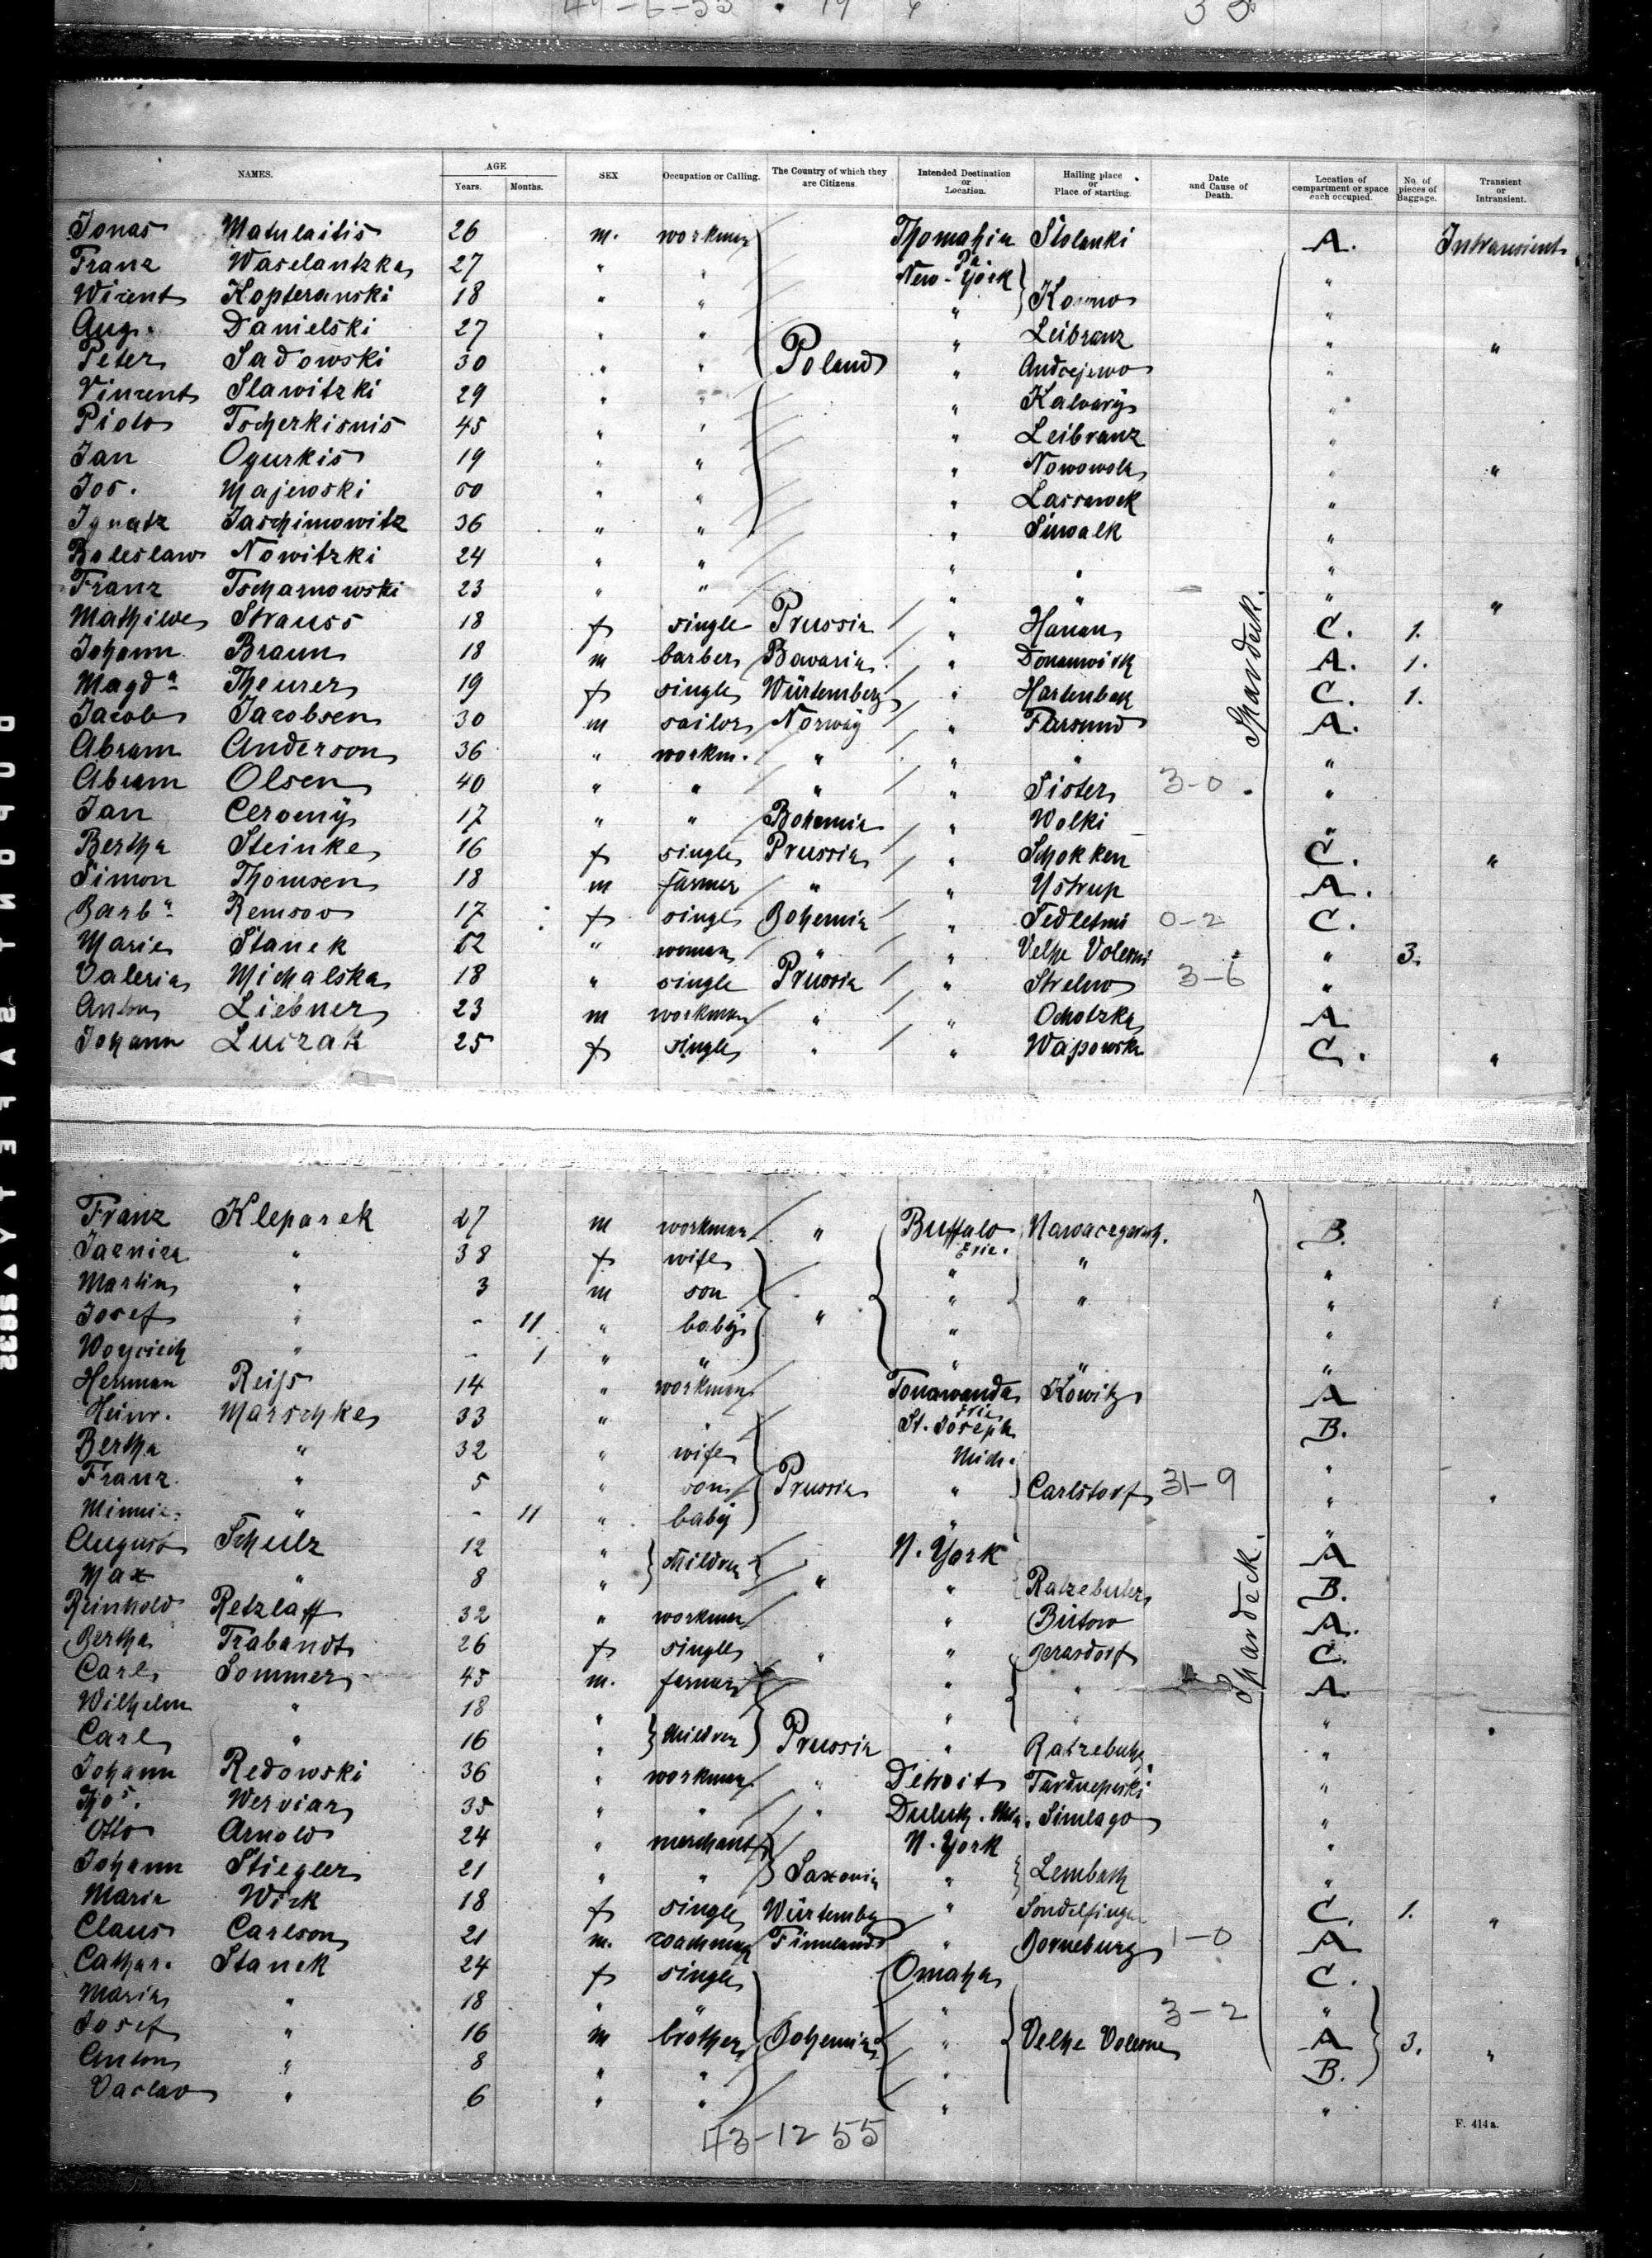 NAMES. AGE Years. Months. SEX Occupation or Calling. The Country of which they are Citizens. Intended Destination or Location. Hailing place or Place of starting. Date and Cause of Death. Location of compartment or space each occupied. No. of pieces of Baggage. Transient or Intransient.
Jonas Matulaitis 26 m. workman Thomahin Pa. A. Intransient
Franz Waselantzka 27 " " New-York "
Wizent Kopteranski 18 " " " Kowno "
Aug. Danielski 27 " " " Leibranz " "
Peter Sadowski 30 " " Poland " Andrejewo "
Vinzent Slawitzki 29 " " " Kalvary "
Piotr Tscherkisnis 45 " " " Leibranz "
Jan Ogurkis 19 " " " Nowowola " "
Jos. Majewski " " " "
Ignatz Jaschimowitz 36 " " " Suwalk "
Boleslaw Nowitzki 24 " " " " "
Franz Tscharnowski 23 " " " " " "
Mathilde Strauss 18 f single Prussia " Hanau C. 1.
Johann Braun 18 m barber Bavaria " A. 1.
Magda Theurer 19 f single Würtemberg " C. 1.
Jacob Jacobsen 30 m sailor Norway " Farsund A.
Abram Anderson 36 " workm. " " " "
Abram Olsen 40 " " " " Sister 3-0 "
Jan Ceromy 17 " " Bohemia " Wolki "
Bertha Steinke 16 f single Prussia " Schokken C. "
Simon Thomsen 18 m farmer " " Ystrup A.
Barba Remsov 17 f single Bohemia " 0-2 C.
Marie Stanek 52 " woman " " " 3.
Valeria Michalska 18 " single Prussia " Strelno 3-6 "
Anton Liebner 23 m workman " " A
Johann Luczak 25 f single " " Waposka C. "
Spardeck.
Franz Kleparek 27 m workman " Buffalo Erie. B.
" 38 f wife " " "
Martin " 3 m son " " "
Josef " - 11 " baby " " "
Woyciech " - 1 " " " "
Herman Reiss 14 " workman Tonawanda Erie Kowitz A
Heinr. Marschke 33 " " St. Joseph Mich. B.
Bertha " 32 " wife "
Franz " 5 " son Prussia " Carlstorf 31-9 " "
Minnie " - 11 " baby "
August Schulz 12 " children N. York A
Max " 8 " " " Ratzebuhr B.
Reinhold Retzlaff 32 " workman " Bütow A.
Bertha Trabandt 26 f single " " Gerasdorf C.
Carl Sommer 45 m. farmer " " A
Wilhelm " 18 " children " " "
Carl " 16 " Prussia " Ratzebuhr " "
Johann Redowski 36 " workman " Detroit "
Thos. Werviar 35 " " " Duluth. Simlago "
Otto Arnold 24 " merchant N. York "
Johann Stiegler 21 " " Saxonia " Lembach "
Maria Wick 18 f single Würtembg " Sondelfingen C. 1. "
Claus Carlson 21 m. coachman Finnland " Borneburg 1-0 A
Cathar. Stanek 24 f single Omaha C.
Maria " 18 " " " 3-2 "
Josef " 16 m brother Bohemia " Velhe A 3. "
Anton " 8 " " " B.
Vaclav " 6 " " " "
Spardeck.
43-12 55
F. 414a.